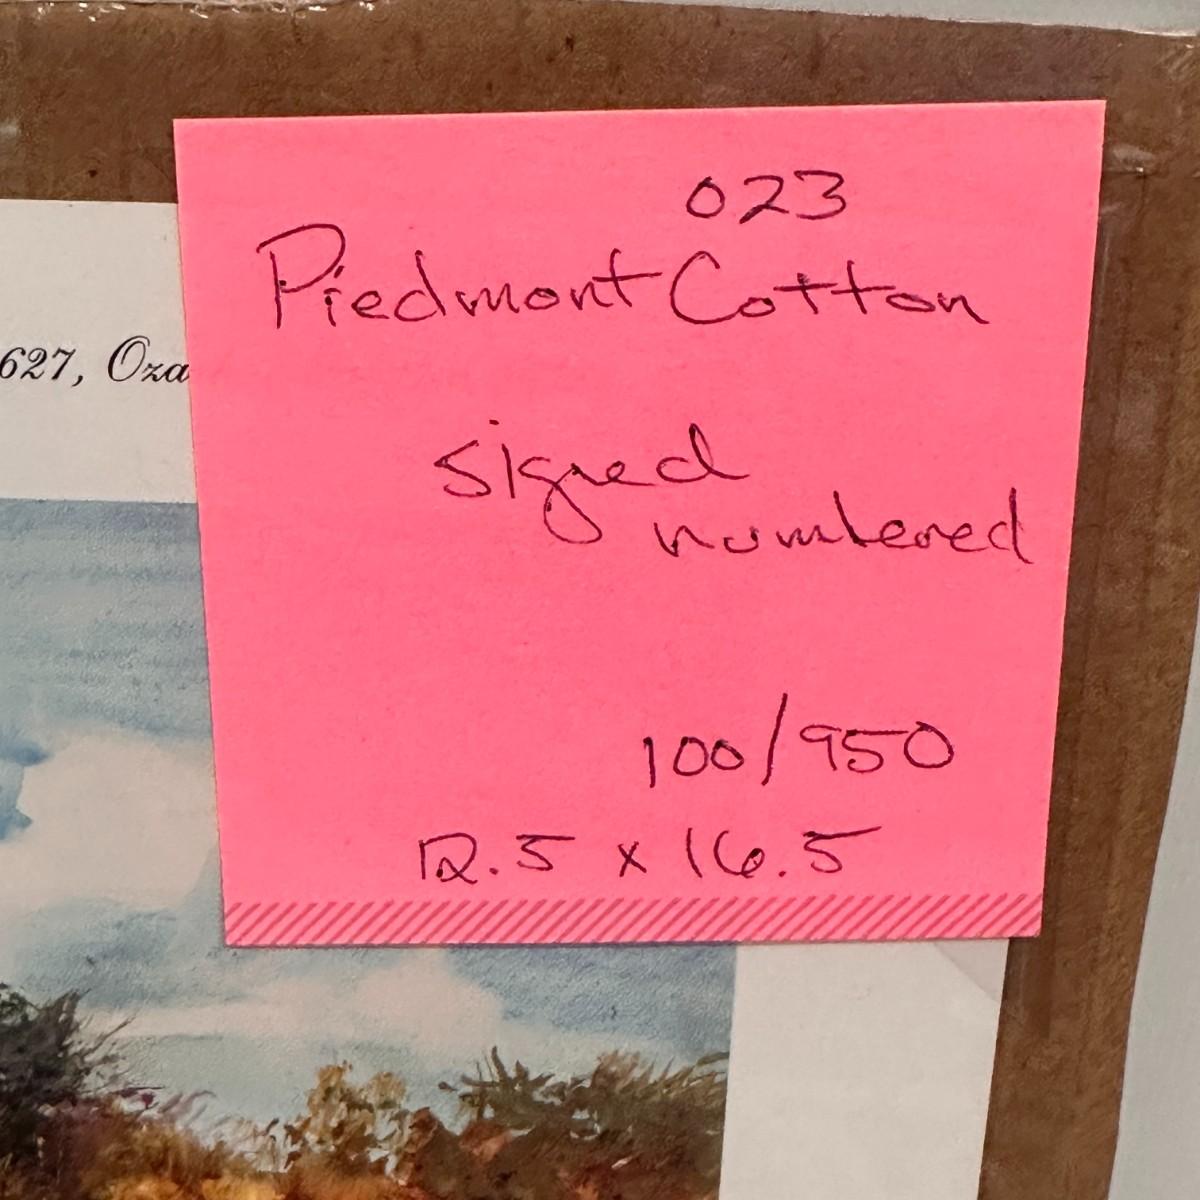 023
Piedmont Cotton
627, Oza
signed
numbered
100/950
12.5 x 16.5